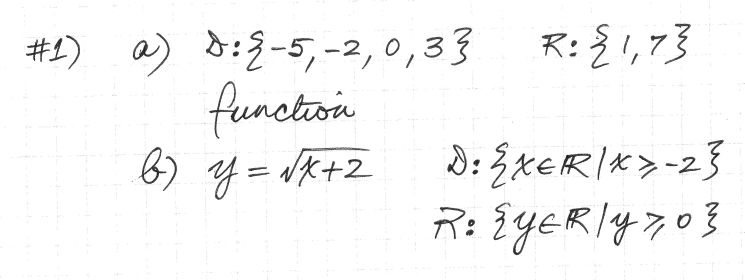 #1) a) D:{-5,-2,0,3} R:{1,7}
function
b) y=√x+2 D:{x∈ℝ|x≥-2}
R:{y∈ℝ|y≥0}